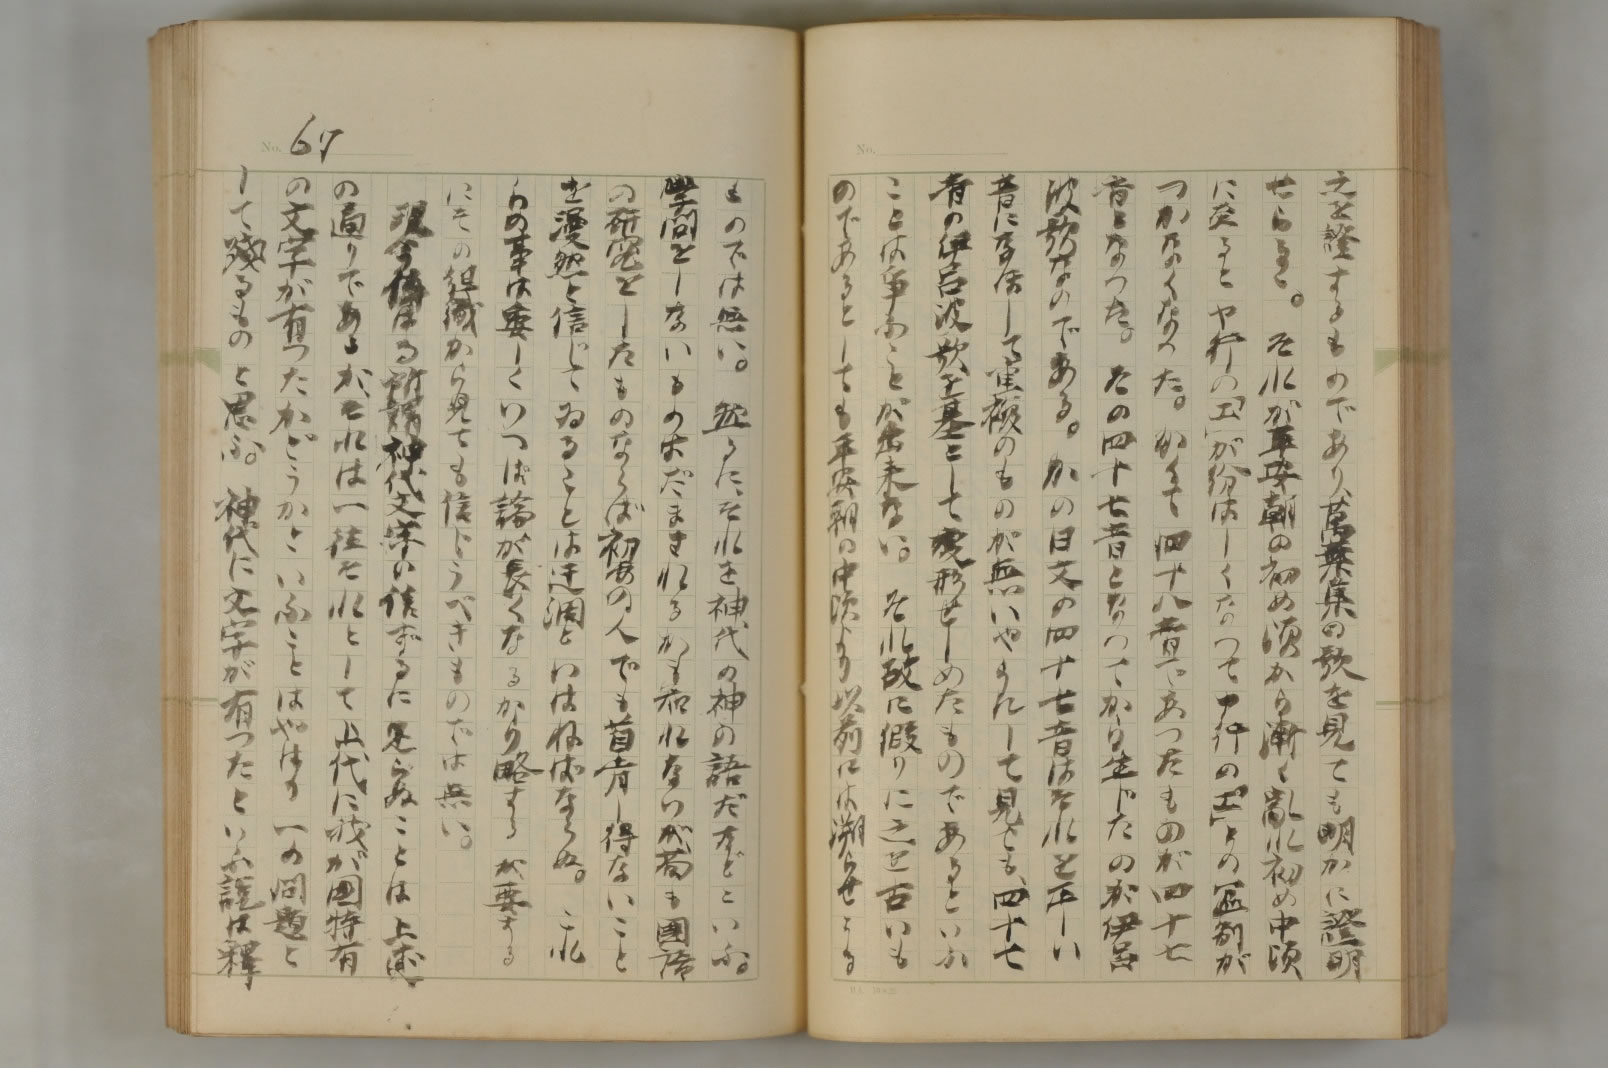 之を證するものであり、萬葉集の歌を見ても明かに證明
せらるゝ。それが平安朝の初め頃から漸く亂れ初め中頃
に至ると、ヤ行の「エ」が紛はしくなつてア行の「エ」との區別が
つかなくなつた。かくて四十八音であつたものが四十七
音となつた。その四十七音となつてから生じたのが伊呂
波歌なのである。かの日文の四十七音はそれを正しい
音になほして重複のものが無いやうにして見ても、四十七
音の伊呂波歌を基として變形せしめたものであるといふ
ことは爭ふことが出來ない。それ故に假りに之を古いも
のであるとしても平安朝の中頃より以前には溯らせうる
No. 67
ものでは無い。然るに、それを神代の神の語だなどといふ。
學問をしないものはだまされるかも知れないが苟も國語
の研究をしたものならば初めの人でも首肯し得ないこと
を漫然と信じてゐることは迂濶といはねばならぬ。これ
らの事は委しくいつぱ論が長くなるから略するが要する
にその組織から見ても信じうべきものでは無い。
現今傳はる所謂神代文字の信ずるに足らぬことは上述
の通りであるがそれは一往それとして上代に我が國特有
の文字が有つたかどうかといふことはやはり一の問題と
して殘るものと思ふ。神代に文字が有つたといふ説は釋
No.